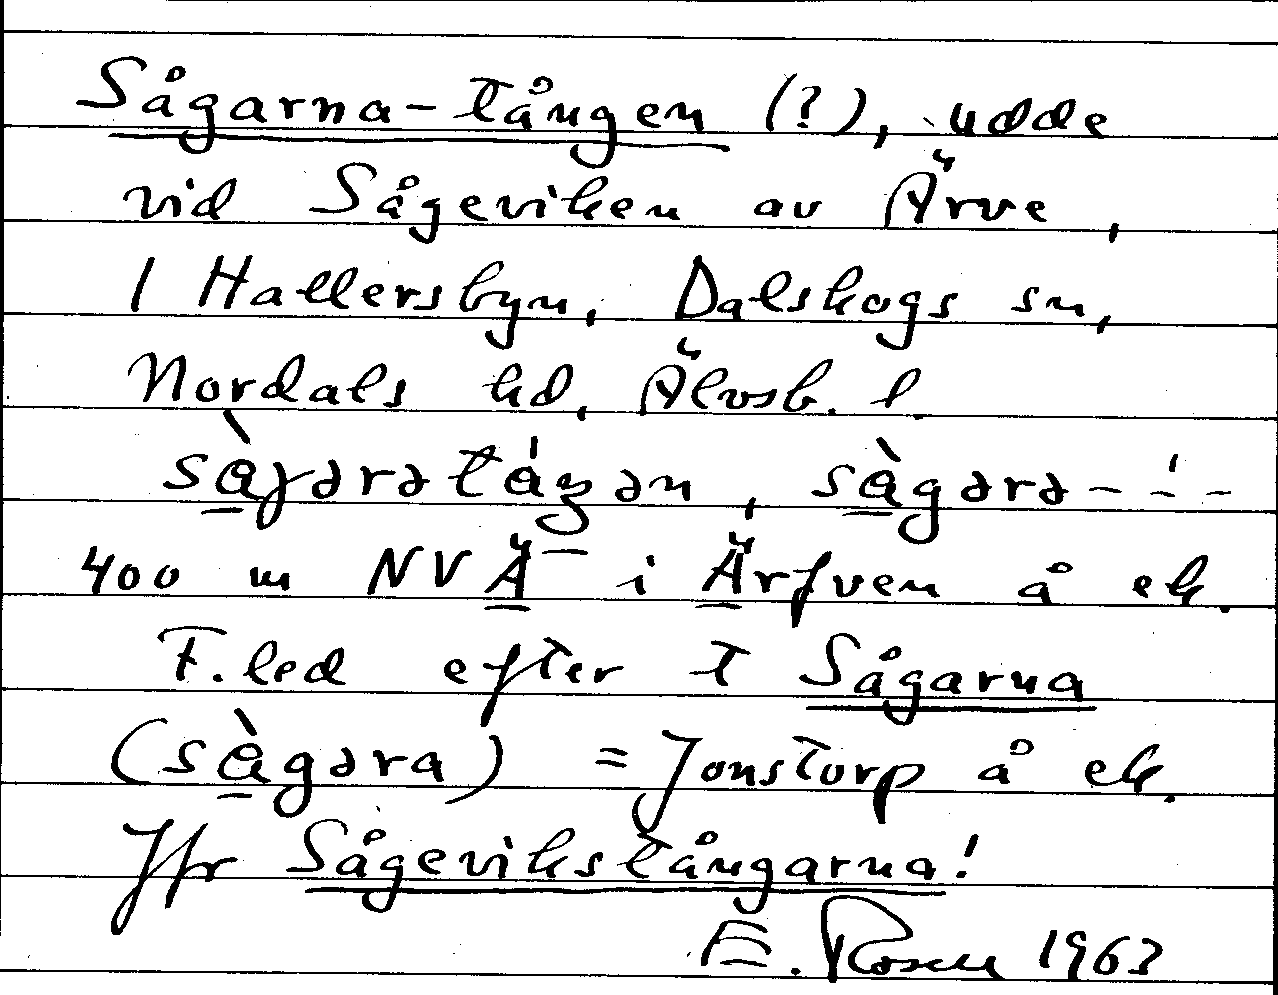 Sågarna-tången (?), udde
vid Sågeviken av Ärve,
i Hallersbyn, Dalskogs sn,
Nordals hd, Älvsb. l.
sà̱gərətåŋən, sà̱gərə- - ' -
400 m NV Ä i Ärfven å ek.
F.led efter t Sågarna
(sà̱gəra) = Jonstorp å ek.
Jfr Sågevikstångarna!
E. Rosell 1963